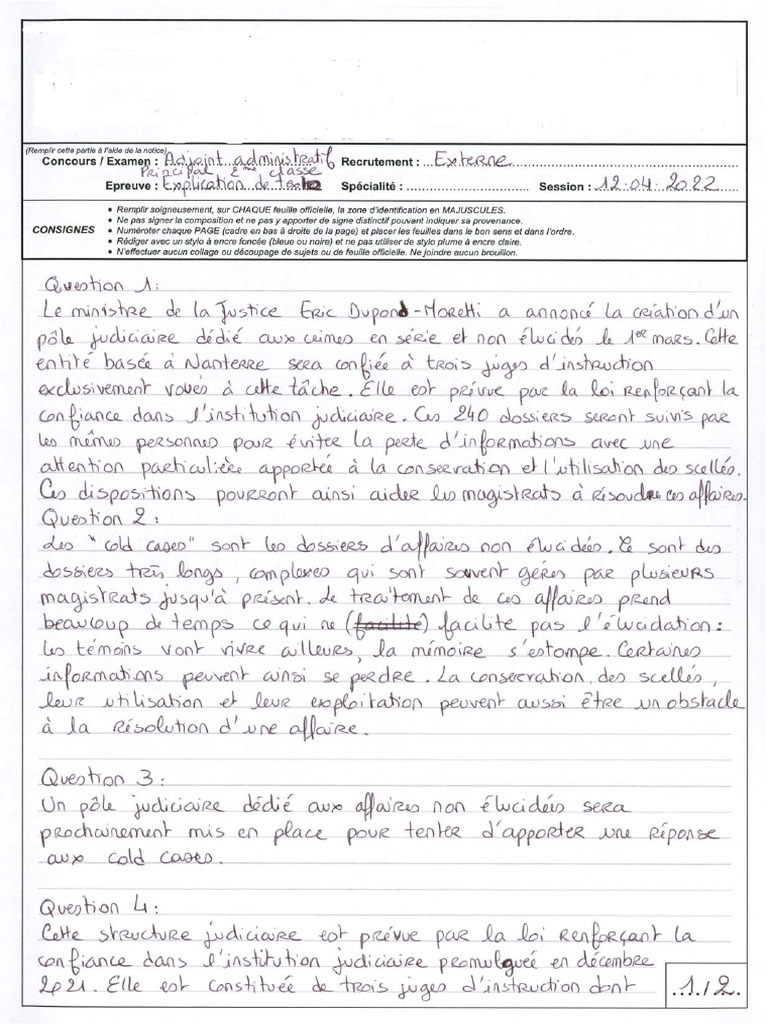 (Remplir cette partie à l'aide de la notice)
Concours / Examen : Adjoint administratif Recrutement : Externe
Principal 2ème classe
Epreuve : Explication de texte Spécialité : Session : 12.04.2022
CONSIGNES
• Remplir soigneusement, sur CHAQUE feuille officielle, la zone d'identification en MAJUSCULES.
• Ne pas signer la composition et ne pas y apporter de signe distinctif pouvant indiquer sa provenance.
• Numéroter chaque PAGE (cadre en bas à droite de la page) et placer les feuilles dans le bon sens et dans l'ordre.
• Rédiger avec un stylo à encre foncée (bleue ou noire) et ne pas utiliser de stylo plume à encre claire.
• N'effectuer aucun collage ou découpage de sujets ou de feuille officielle. Ne joindre aucun brouillon.
Question 1:
Le ministre de la Justice Eric Dupond-Moretti a annoncé la création d'un
pôle judiciaire dédié aux crimes en série et non élucidés le 1er mars. Cette
entité basée à Nanterre sera confiée à trois juges d'instruction
exclusivement voués à cette tâche. Elle est prévue par la loi renforçant la
confiance dans l'institution judiciaire. Ces 240 dossiers seront suivis par
les mêmes personnes pour éviter la perte d'informations avec une
attention particulière apportée à la conservation et l'utilisation des scellés.
Ces dispositions pourront ainsi aider les magistrats à résoudre ces affaires.
Question 2:
Les "cold cases" sont les dossiers d'affaires non élucidées. Ce sont des
dossiers très longs, complexes qui sont souvent gérés par plusieurs
magistrats jusqu'à présent. Le traitement de ces affaires prend
beaucoup de temps ce qui ne (facilité) facilite pas l'élucidation:
les témoins vont vivre ailleurs, la mémoire s'estompe. Certaines
informations peuvent ainsi se perdre. La conservation, des scellés,
leur utilisation et leur exploitation peuvent aussi être un obstacle
à la résolution d'une affaire.
Question 3:
Un pôle judiciaire dédié aux affaires non élucidées sera
prochainement mis en place pour tenter d'apporter une réponse
aux cold cases.
Question 4:
Cette structure judiciaire est prévue par la loi renforçant la
confiance dans l'institution judiciaire promulguée en décembre
2021. Elle est constituée de trois juges d'instruction dont
1./2.